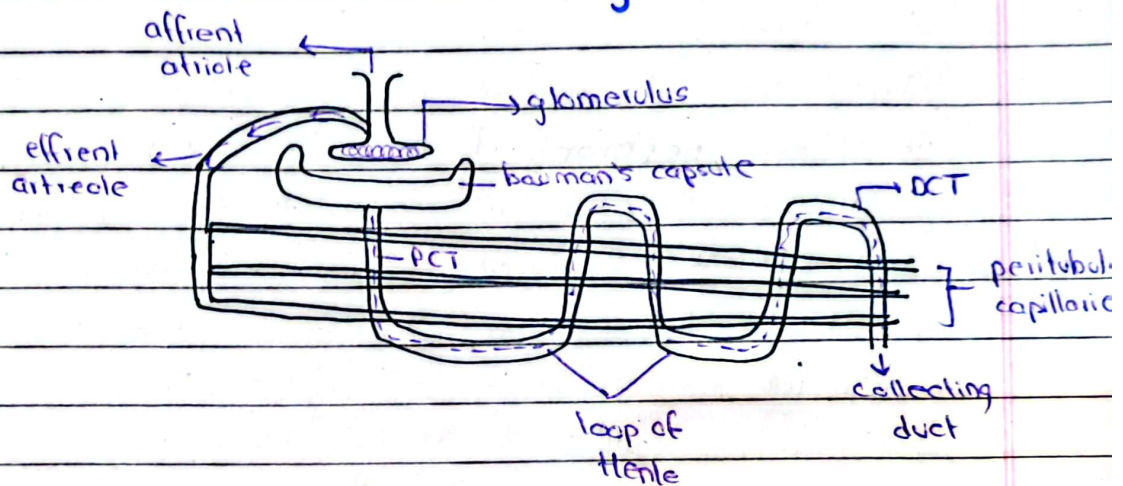 affrent
atriole
glomerulus
effrent
artreole
bowman's capsule
DCT
PCT
peritubul
capillarie
collecting
duct
loop of
Henle